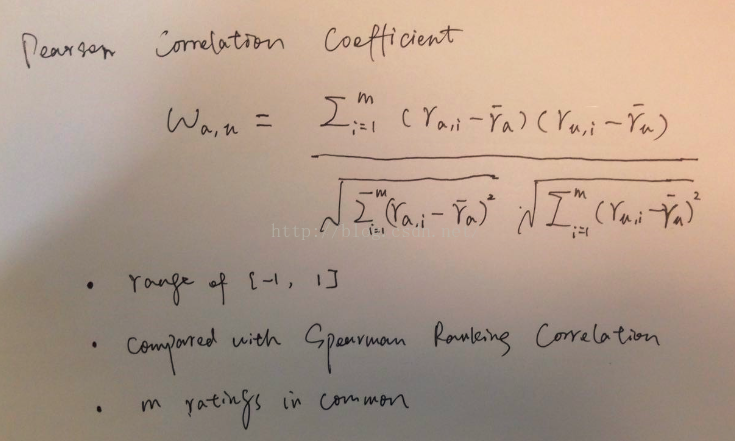 Pearson Correlation Coefficient
w_{a,u} = \frac{\sum_{i=1}^{m} (r_{a,i} - \bar{r}_a)(r_{u,i} - \bar{r}_u)}{\sqrt{\sum_{i=1}^{m} (r_{a,i} - \bar{r}_a)^2} \sqrt{\sum_{i=1}^{m} (r_{u,i} - \bar{r}_u)^2}}
http://blog.csdn.net
• range of [-1, 1]
• compared with Spearman Ranking Correlation
• m ratings in common